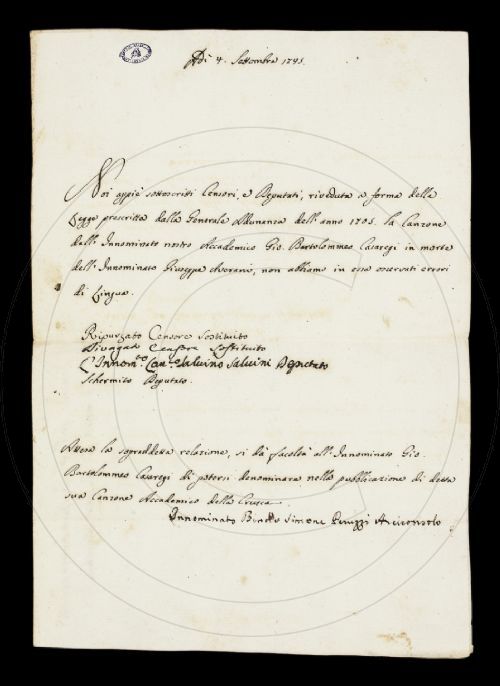 Adì 4. Settembre 1745.
Noi appiè sottoscritti Censori, e Deputati, riveduta a forma della
Legge prescritta dalla Generale Adunanza dell'anno 1705. la Canzone
dell'Innominato nostro Accademico Gio. Bartolommeo Casaregi in morte
dell'Innominato Giuseppe Averani, non abbiamo in essa osservati errori
di Lingua.
Ripurgato Censore Sostituito
Divagato Censore Sostituito
L'Innom.to Can.co Salvino Salvini Deputato
Schermito Deputato.
Attesa la sopraddetta relazione, si dà facoltà all'Innominato Gio.
Bartolommeo Casaregi di potersi denominare nella pubblicazione di detta
sua Canzone Accademico della Crusca.
Innominato Bindo Simone Peruzzi Arciconsolo